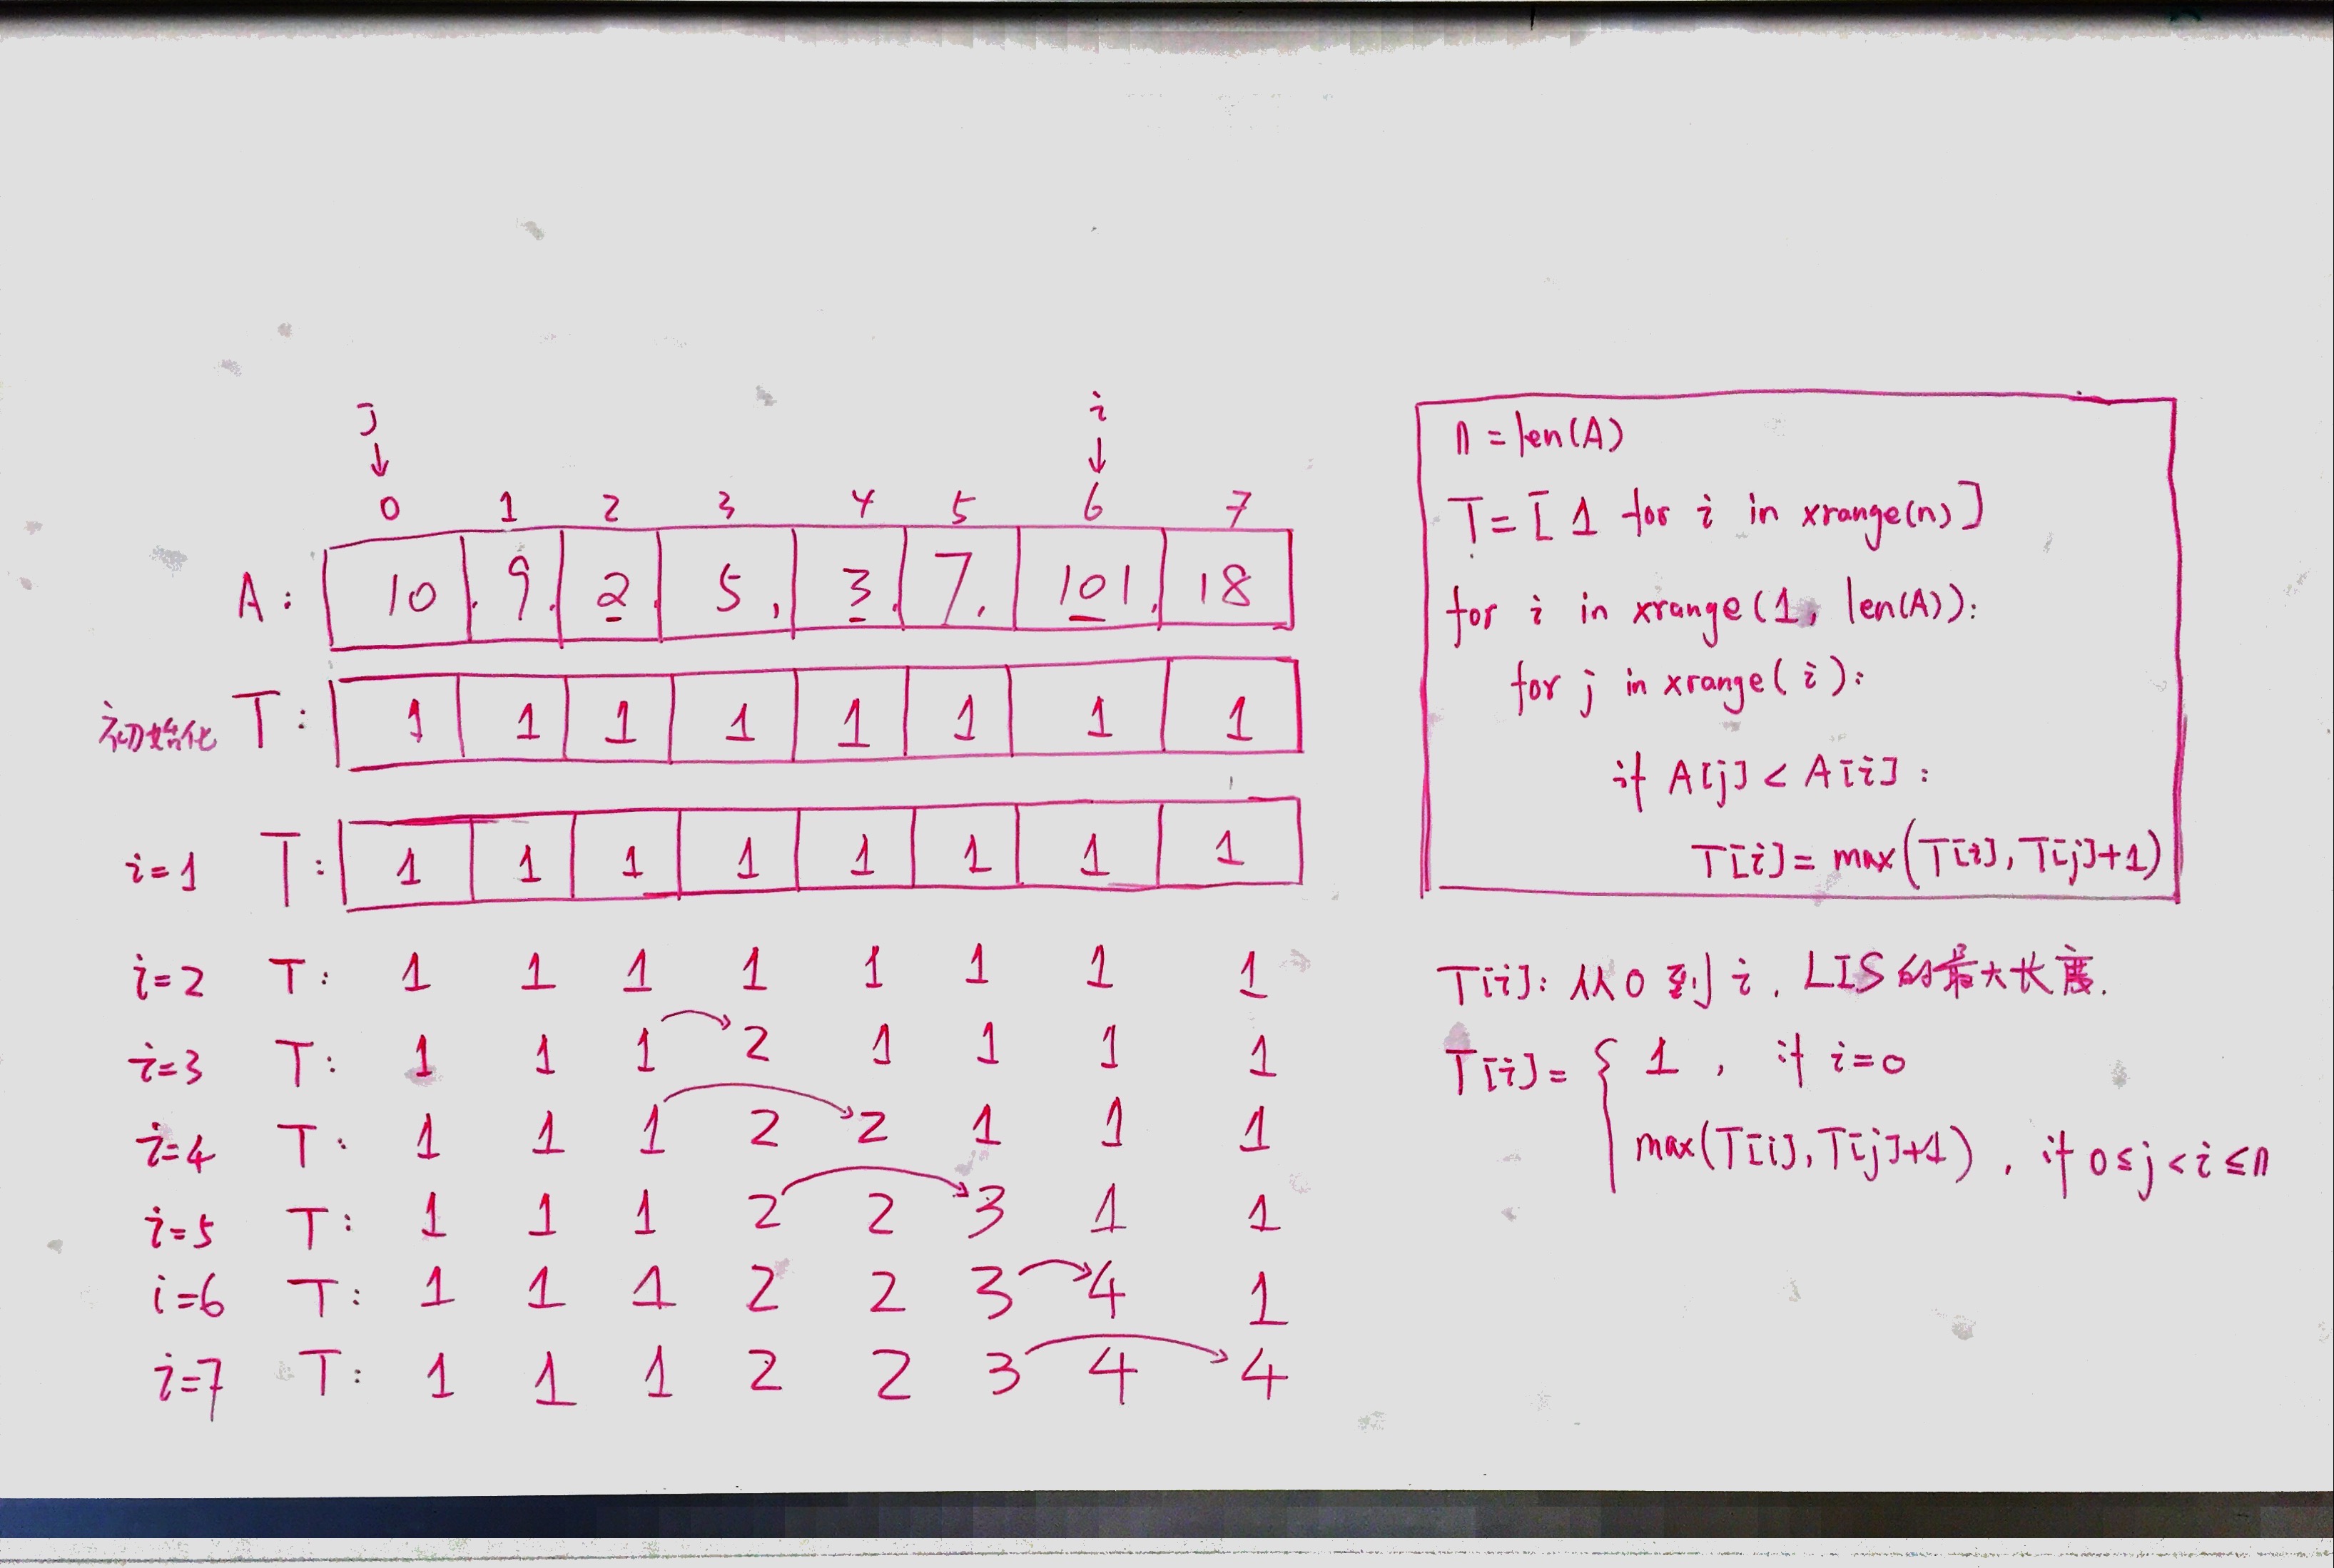 j i
0 1 2 3 4 5 6 7
A: 10, 9, 2, 5, 3, 7, 101, 18
初始化 T: 1 1 1 1 1 1 1 1
i=1 T: 1 1 1 1 1 1 1 1
i=2 T: 1 1 1 1 1 1 1 1
i=3 T: 1 1 1 2 1 1 1 1
i=4 T: 1 1 1 2 2 1 1 1
i=5 T: 1 1 1 2 2 3 1 1
i=6 T: 1 1 1 2 2 3 4 1
i=7 T: 1 1 1 2 2 3 4 4
n = len(A)
T = [ 1 for i in xrange(n) ]
for i in xrange(1, len(A)):
for j in xrange(i):
if A[j] < A[i]:
T[i] = max(T[i], T[j]+1)
T[i]: 从0到i, LIS的最大长度.
T[i] = { 1, if i=0
max(T[i], T[j]+1), if 0≤j<i≤n